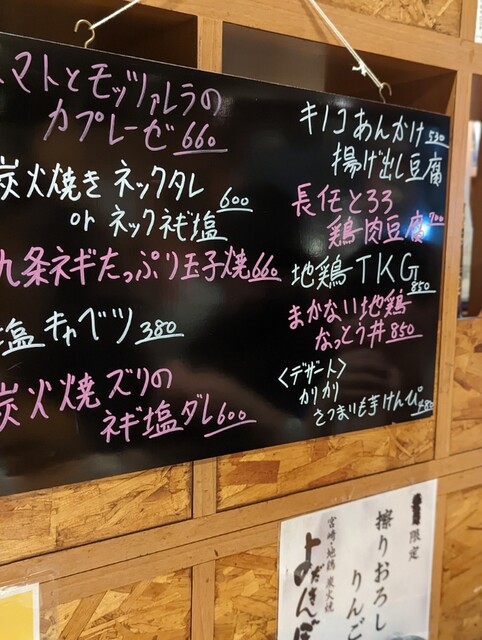 マトとモッツァレラの
カプレーゼ 660
炭火焼き ネックタレ 600
or ネックネギ塩
九条ネギたっぷり玉子焼 660
塩キャベツ 380
炭火焼ズリの
ネギ塩ダレ 600
キノコあんかけ 530
揚げ出し豆腐
長任とろろ
鶏肉豆腐 700
地鶏TKG 850
まかない地鶏
なっとう丼 850
〈デザート〉
かりかり
さつまいも芋けんぴ 480
限定
擦りおろし
りんご
宮崎・地鶏 炭火焼
よだきんぼ